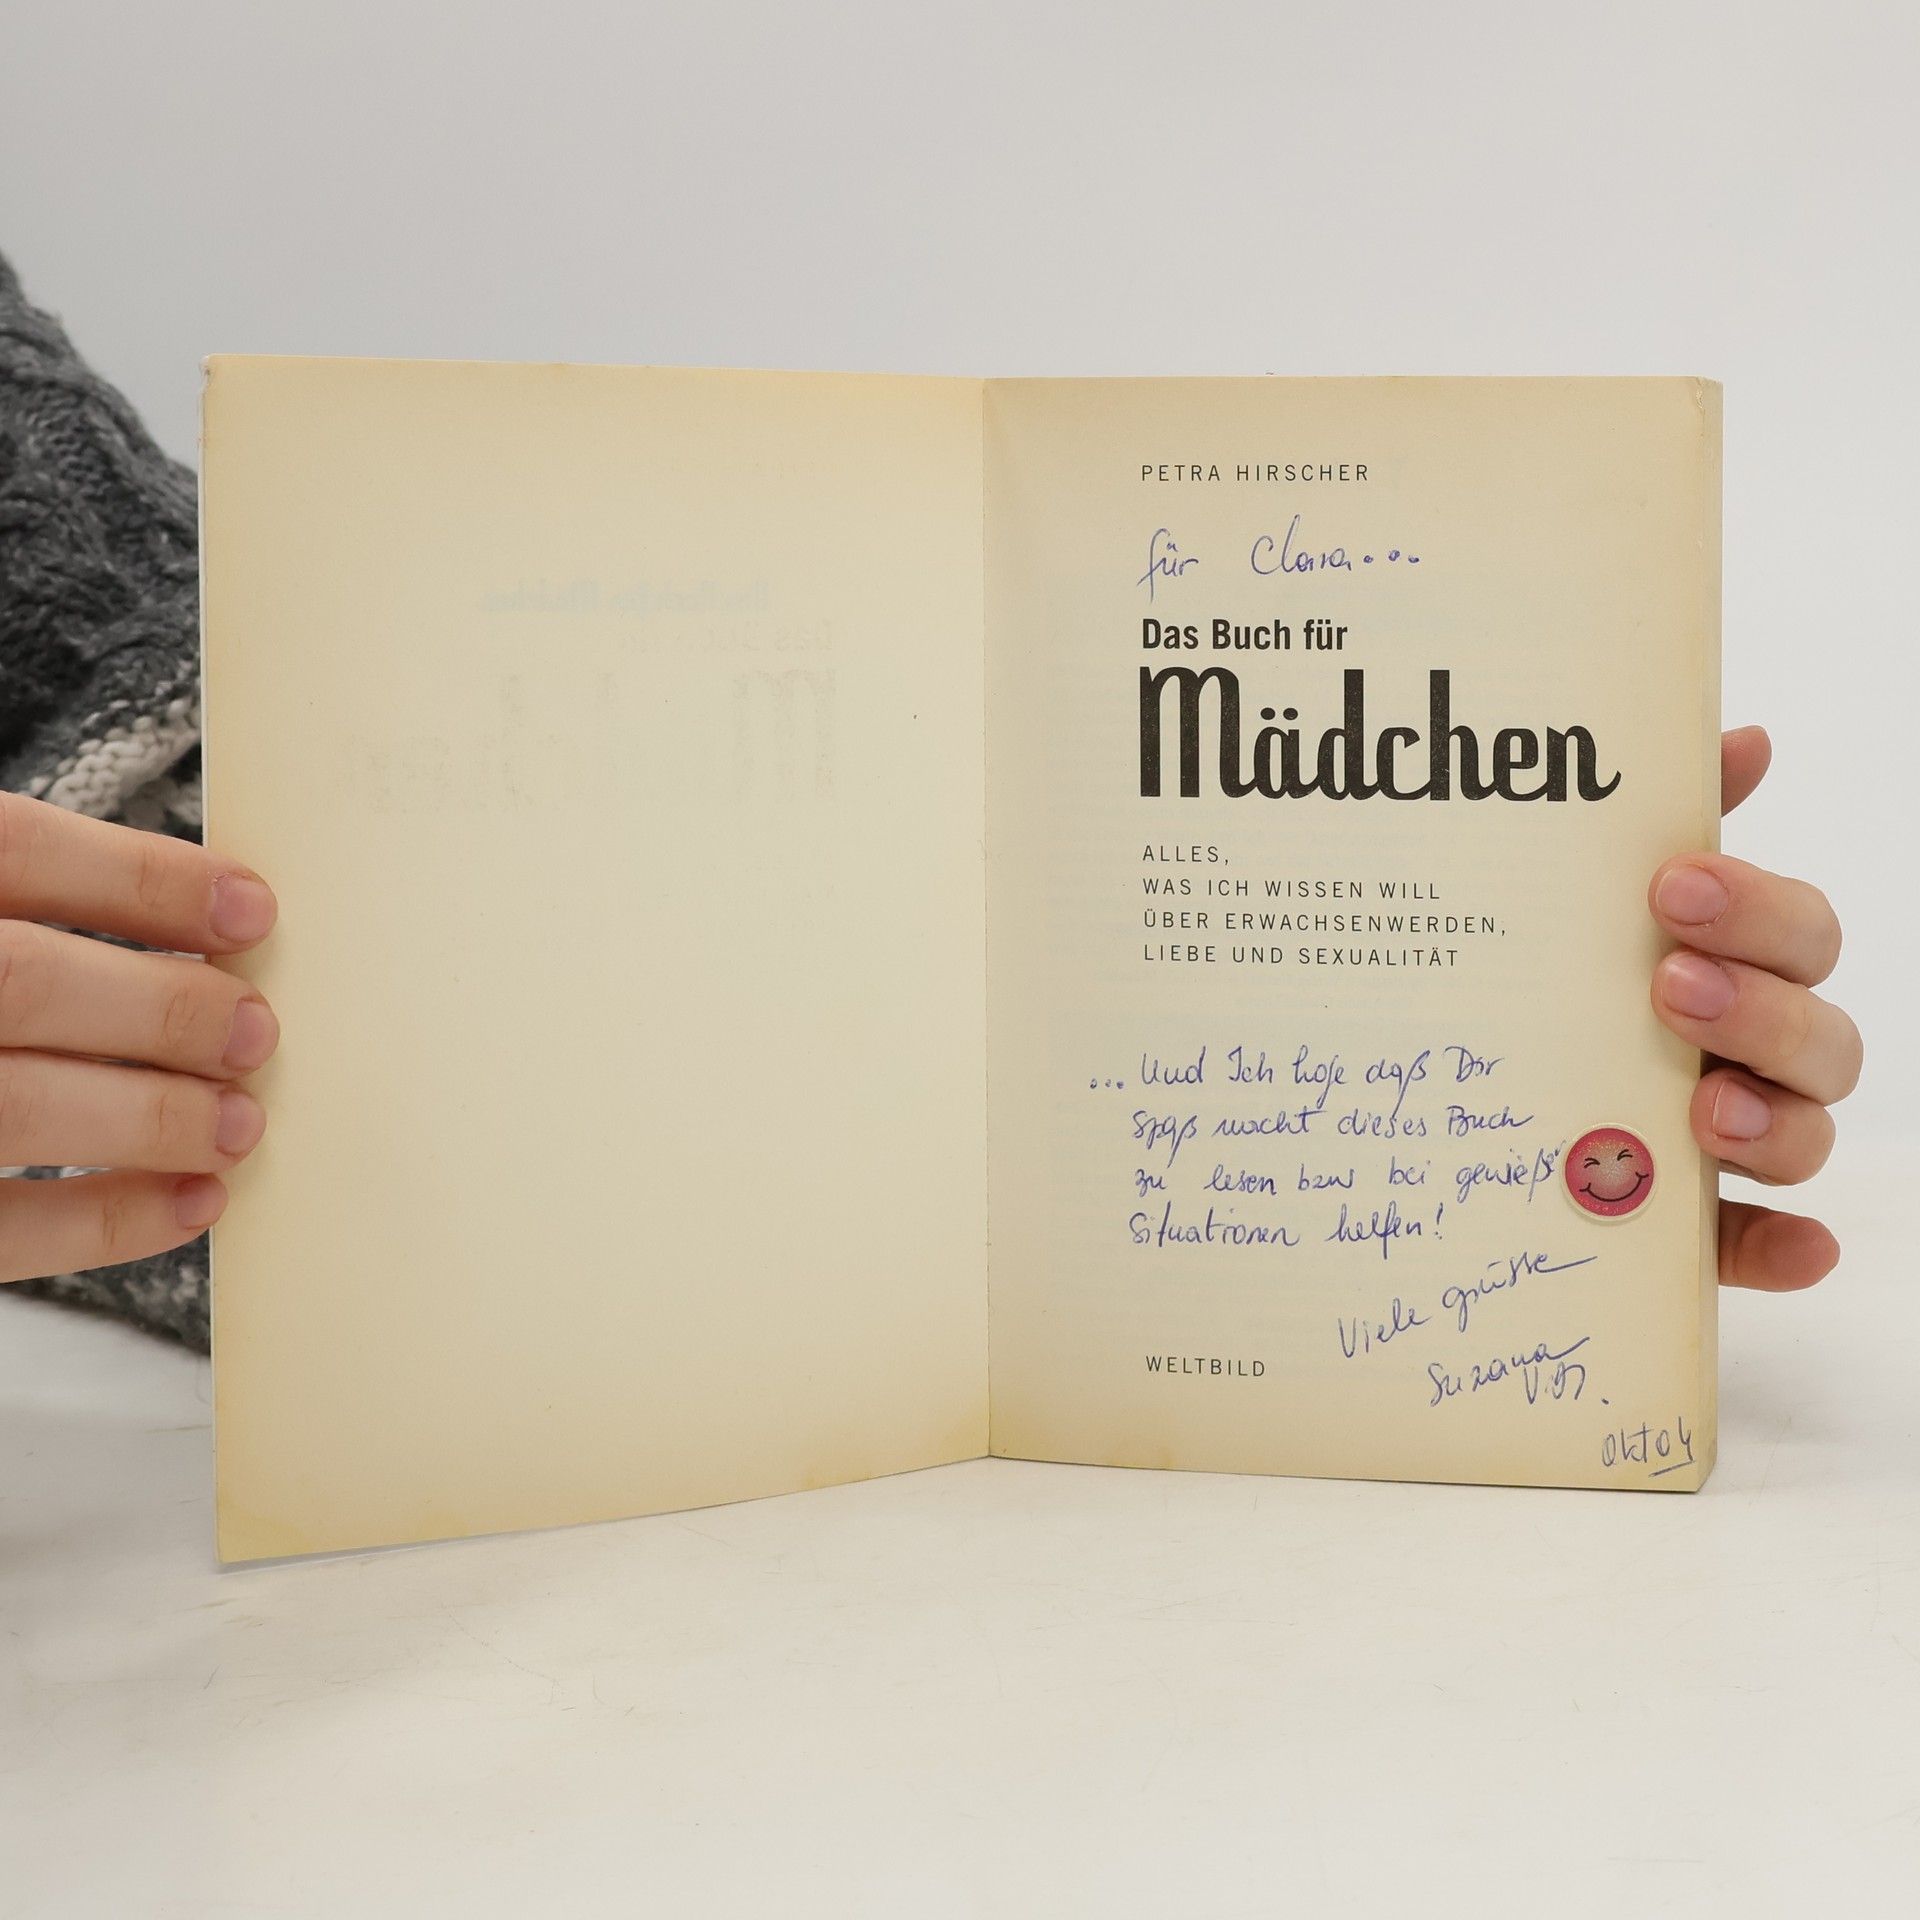 PETRA HIRSCHER
für Clara...
Das Buch für
Mädchen
ALLES,
WAS ICH WISSEN WILL
ÜBER ERWACHSENWERDEN,
LIEBE UND SEXUALITÄT
... Und Ich hoffe daß Dir
Spaß macht dieses Buch
zu lesen bzw bei
Situationen helfen!
Viele Grüsse
Suzana
WELTBILD
Okt 04